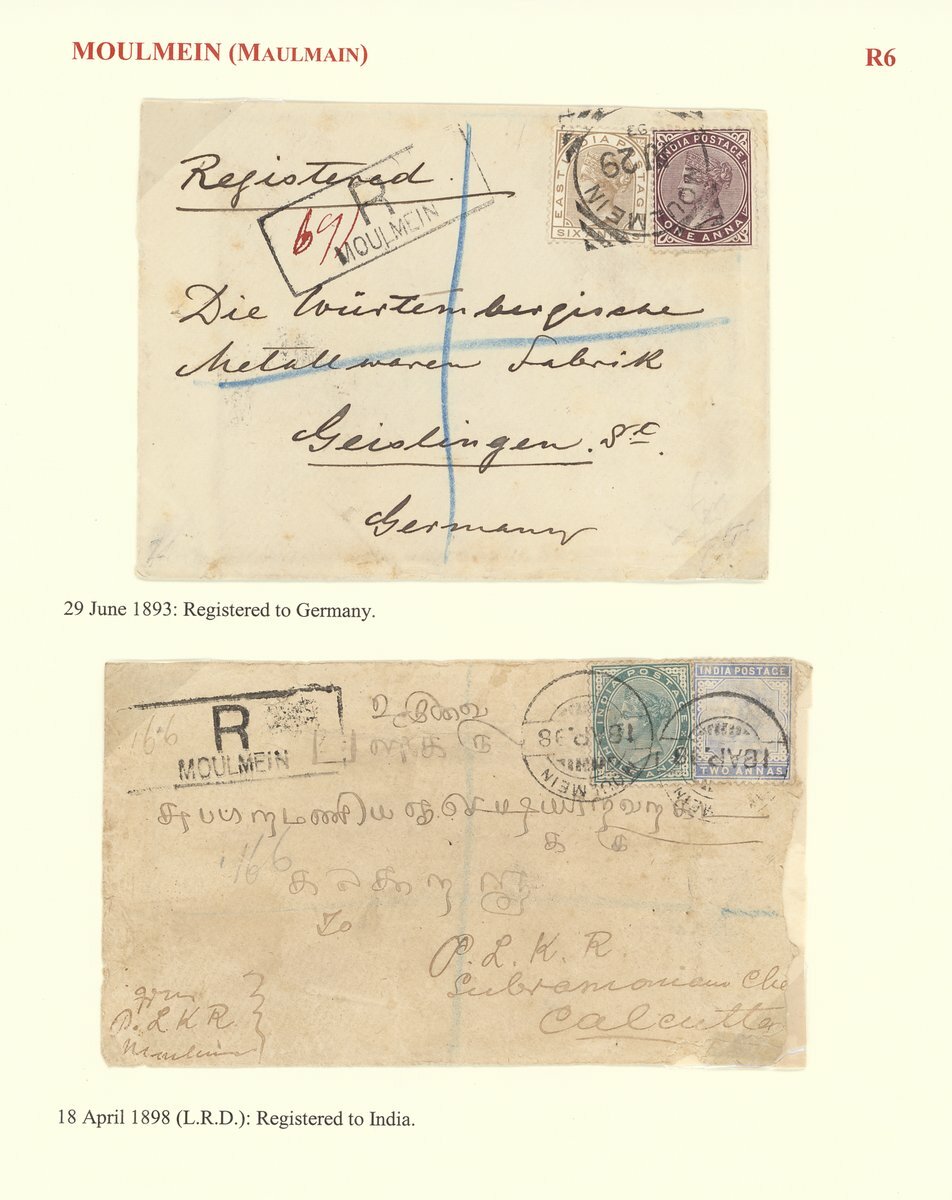 MOULMEIN (MAULMAIN)
R6
Registered.
R
MOULMEIN
69
EAST INDIA POSTAGE
SIX
INDIA POSTAGE
ONE ANNA
MOULMEIN
29
93
Die Würtembergische
Metallwaren Fabrik
Geislingen. St.
Germany
29 June 1893: Registered to Germany.
R
MOULMEIN
166
உ
INDIA POSTAGE
INDIA POSTAGE
TWO ANNAS
MOULMEIN
18 AP. 98
18 AP. 98
166
To
P. L. K. R.
Subramonian Che
Calcutta
from
P. L K R
Moulmein
18 April 1898 (L.R.D.): Registered to India.